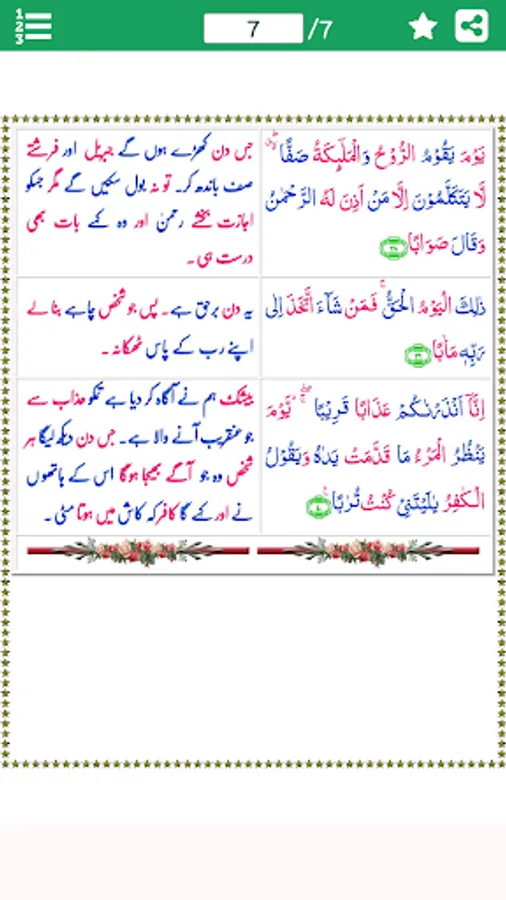 1
2
3
7 /7
يَوْمَ يَقُوْمُ الرُّوْحُ وَالْمَلٰٓئِكَةُ صَفًّا ۙۗ
لَّا يَتَكَلَّمُوْنَ اِلَّا مَنْ اَذِنَ لَهُ الرَّحْمٰنُ
وَقَالَ صَوَابًا ۳۸
جس دن کھڑے ہوں گے جبریل اور فرشتے
صف باندھ کر۔ تو نہ بول سکیں گے مگر جسکو
اجازت بخشے رحمٰن اور وہ کہے بات بھی
درست ہی۔
ذٰلِكَ الْيَوْمُ الْحَقُّ ۚ فَمَنْ شَآءَ اتَّخَذَ اِلٰى
رَبِّهٖ مَاٰبًا ۳۹
یہ دن برحق ہے۔ پس جو شخص چاہے بنا لے
اپنے رب کے پاس ٹھکانہ۔
اِنَّاۤ اَنْذَرْنٰكُمْ عَذَابًا قَرِيْبًا ۖۚ يَّوْمَ
يَنْظُرُ الْمَرْءُ مَا قَدَّمَتْ يَدٰهُ وَيَقُوْلُ
الْكٰفِرُ يٰلَيْتَنِيْ كُنْتُ تُرٰبًا ۴۰
بیشک ہم نے آگاہ کر دیا ہے تمکو عذاب سے
جو عنقریب آنے والا ہے۔ جس دن دیکھ لیگا ہر
شخص وہ جو آگے بھیجا ہوگا اس کے ہاتھوں
نے اور کہے گا کافر کہ کاش میں ہوتا مٹی۔